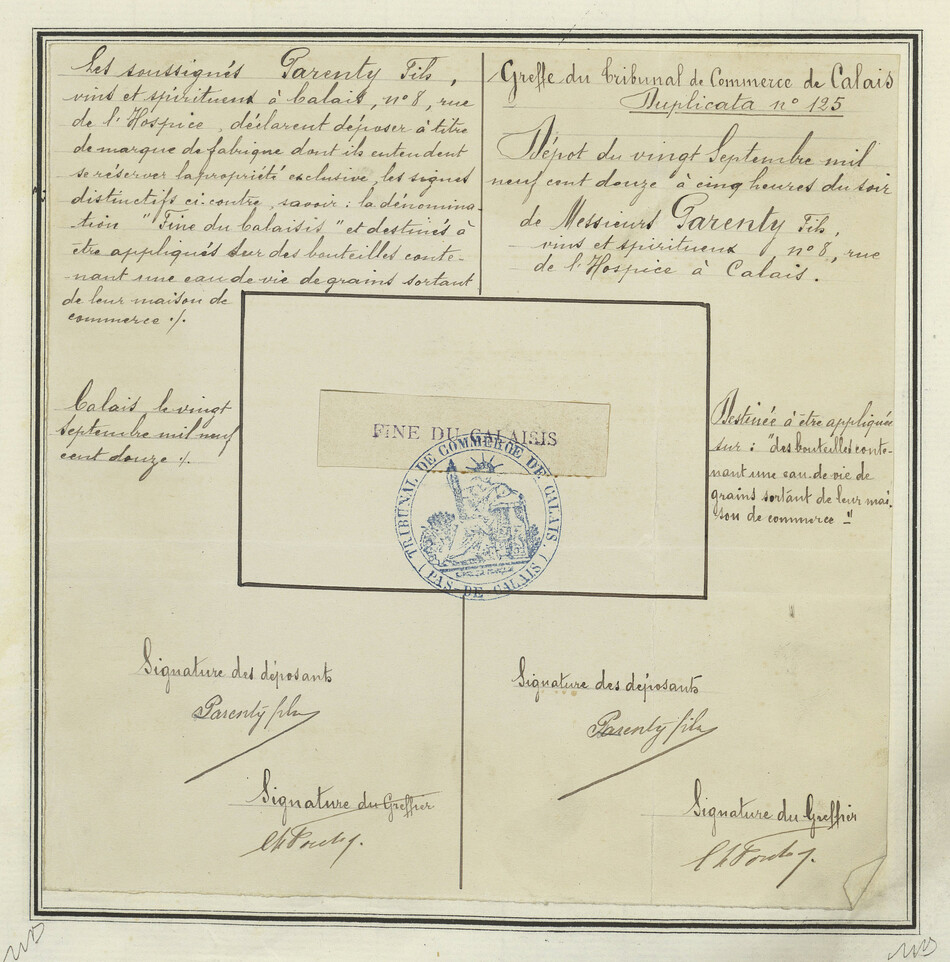 Les soussignés Parenty Fils,
vins et spiritueux à Calais, n° 8, rue
de l'Hospice, déclarent déposer à titre
de marque de fabrique dont ils entendent
se réserver la propriété exclusive, les signes
distinctifs ci-contre, savoir : la dénomina-
tion "Fine du Calaisis" et destinés à
être appliqués sur des bouteilles conte-
nant une eau de vie de grains sortant
de leur maison de
commerce ./.
Calais le vingt
septembre mil neuf
cent douze ./.
Greffe du Tribunal de Commerce de Calais
Duplicata n° 125
Dépot du vingt Septembre mil
neuf cent douze à cinq heures du soir
de Messieurs Parenty Fils,
vins et spiritueux n° 8, rue
de l'Hospice à Calais.
FINE DU CALAISIS
TRIBUNAL DE COMMERCE DE CALAIS
(PAS-DE-CALAIS)
Destinée à être appliquée
sur : "des bouteilles conte-
nant une eau-de-vie de
grains sortant de leur mai-
son de commerce -"
Signature des déposants
Parenty fils
Signature du Greffier
Signature des déposants
Parenty fils
Signature du Greffier